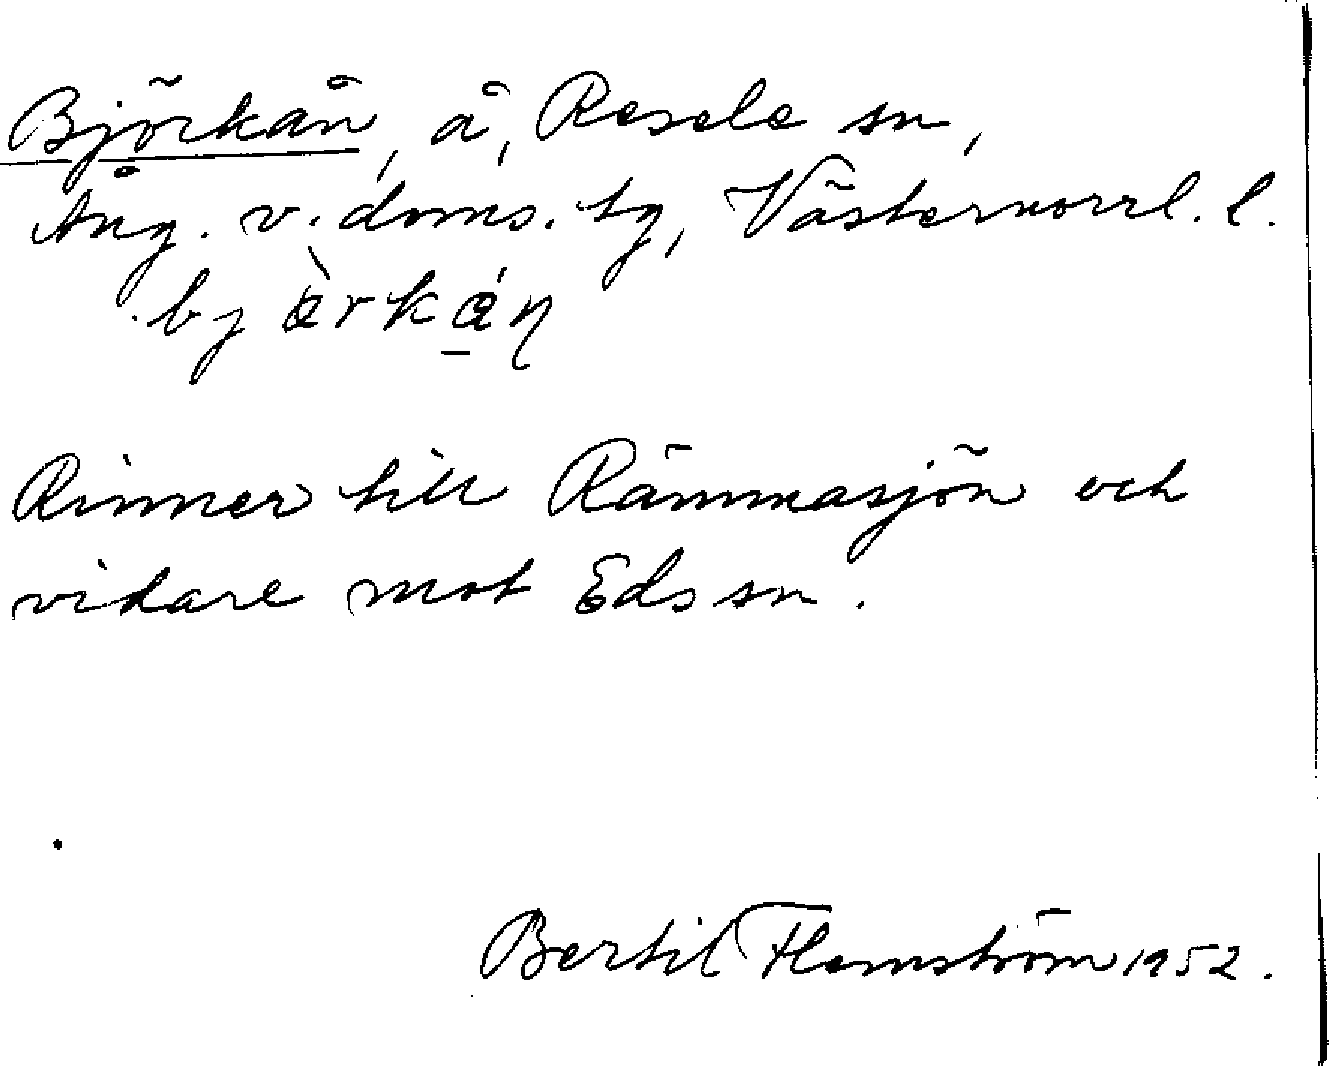 Björkån, å, Resele sn,
Ång. v. doms. tg, Västernorrl. l.
bjæ̀rkǻn
Rinner till Rämmasjön och
vidare mot Eds sn.
Bertil Flemström 1952.